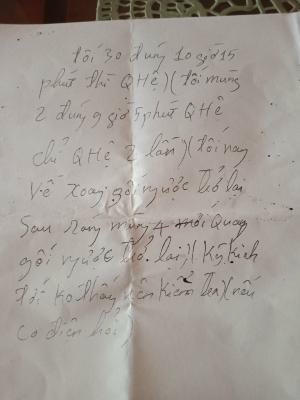 tối 30 đúng 10 giờ 15
phút thì QHệ )( tối mùng
2 đúng 9 giờ 5 phút QHệ
chỉ QHệ 2 lần )( tối nay
về xoay gối ngược trở lại
Sau sáng mùng 4 mới Quay
gối ngược trở lại )( Kỳ Kinh
tới ko thấy nên Kiểm tra )( nếu
có điện hỏi )